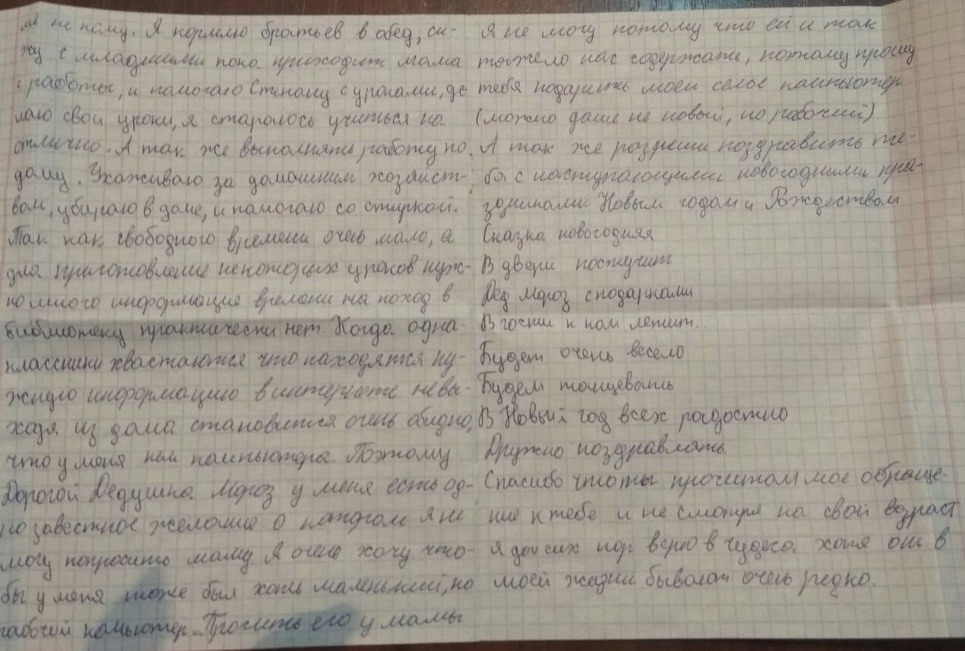 не кому. Я кормлю братьев в обед, си-
жу с младшими пока приходит мама
с работы, и помогаю Степану с уроками, де
лаю свои уроки, я стараюсь учиться на
отлично. А так же выполнять работу по
дому. Ухаживаю за домашним хозяйст-
вом, убираю в доме, и помогаю со стиркой.
Так как свободного времени очень мало, а
для приготовление некоторых уроков нуж-
но много информацие времени на поход в
библиотеку практически нет. Когда одна-
классники хвастаются что находятся ну-
жную информацию в интернете не вы-
ходя из дома становится очень обидно,
что у меня нет компьютера. Поэтому
Дорогой Дедушка Мороз у меня есть од-
но заветное желание о котором я не
могу попросить маму. Я очень хочу что-
бы у меня тоже был хоть маленький, но
рабочий компьютер. Просить его у мамы
Я не могу потому что ей и так
тяжело нас содержати, поэтому прошу
тебя подарить моей семье компьютер
(можно даше не новый, но рабочий)
А так же разреши поздравить те-
бя с наступающими новогодними пра-
здниками Новым годом и Рождеством
Сказка новогодняя
В двери постучит
Дед Мороз с подарками
В гости к нам летит.
Будет очень весело
Будем танцевать
В Новый год всех радостно
Дружно поздравлять.
Спасибо что ты прочитал мое обраще-
ние к тебе и не смотря на свой возраст
я до сих пор верю в чудеса. хотя они в
моей жизни бывают очень редко.